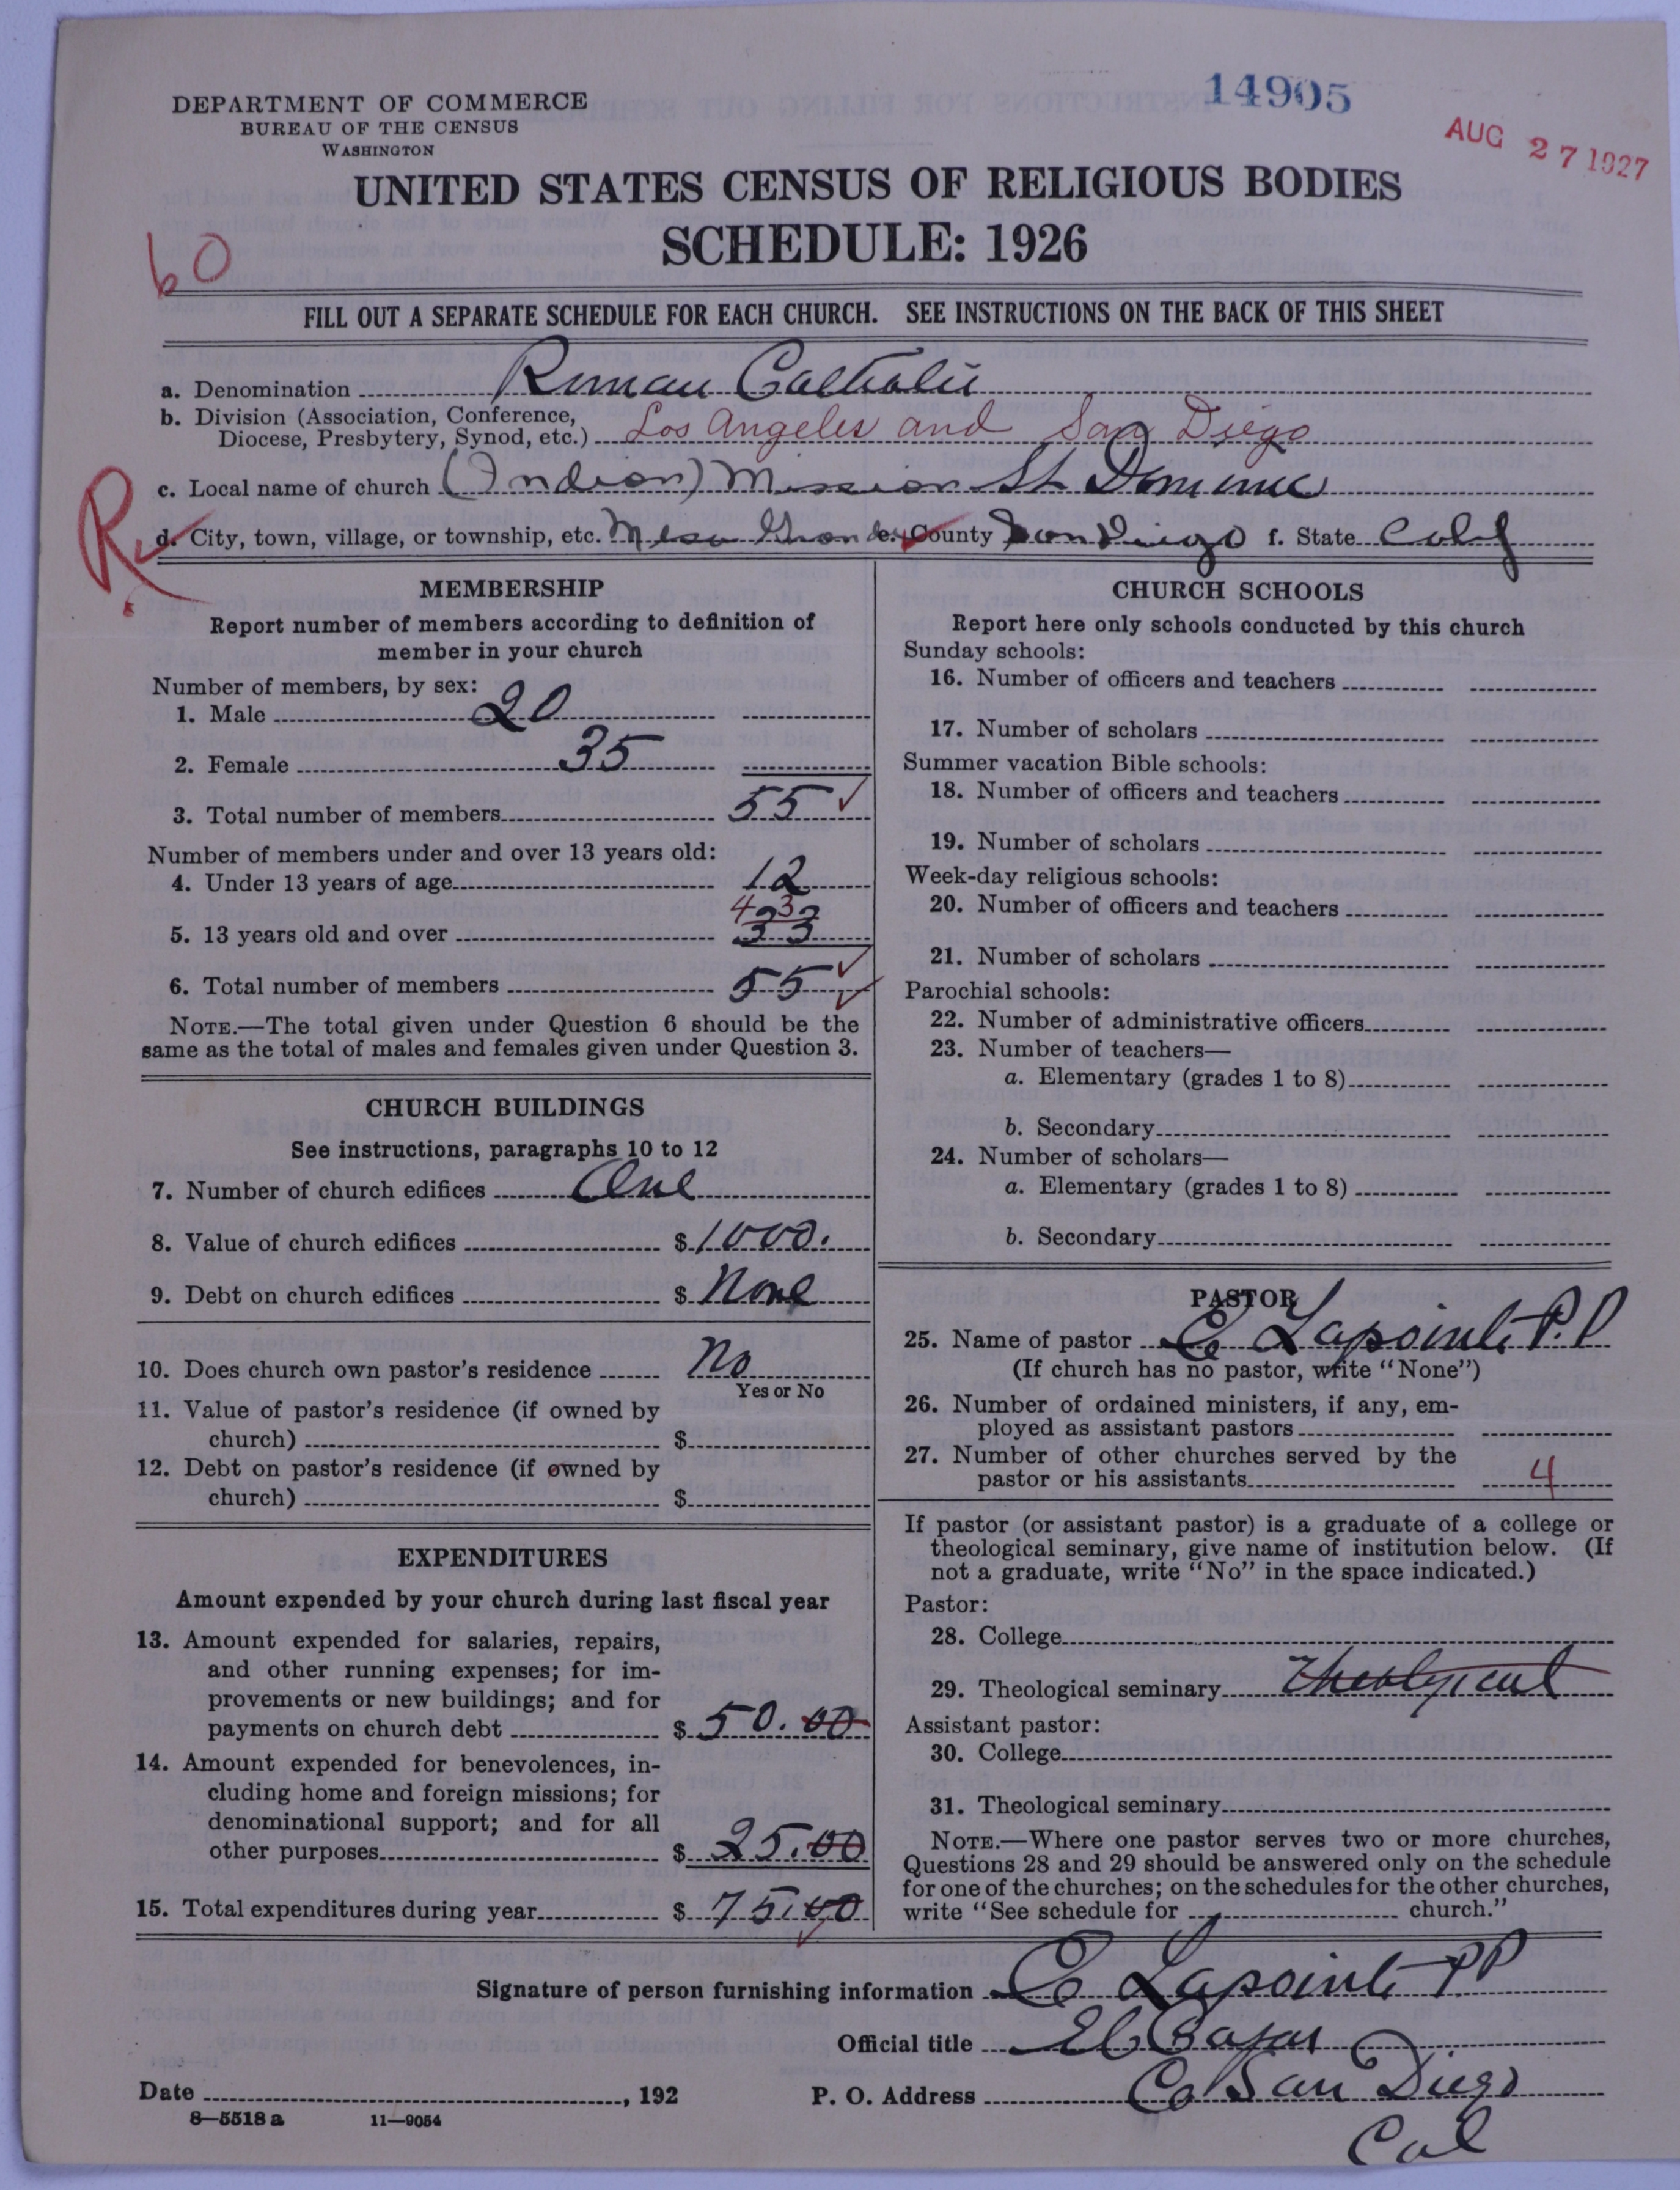 14905
AUG 27 1927
DEPARTMENT OF COMMERCE
BUREAU OF THE CENSUS
WASHINGTON
UNITED STATES CENSUS OF RELIGIOUS BODIES
SCHEDULE: 1926
60
FILL OUT A SEPARATE SCHEDULE FOR EACH CHURCH. SEE INSTRUCTIONS ON THE BACK OF THIS SHEET
a. Denomination Roman Catholic
b. Division (Association, Conference,
Diocese, Presbytery, Synod, etc.) Los Angeles and San Diego
c. Local name of church (Indian) Mission St Dominic
R
d. City, town, village, or township, etc. Mesa Grande e. County San Diego f. State Calif
MEMBERSHIP
Report number of members according to definition of
member in your church
Number of members, by sex:
1. Male 20
2. Female 35
3. Total number of members 55
Number of members under and over 13 years old:
4. Under 13 years of age 12
43
5. 13 years old and over 33
6. Total number of members 55
NOTE.—The total given under Question 6 should be the
same as the total of males and females given under Question 3.
CHURCH BUILDINGS
See instructions, paragraphs 10 to 12
7. Number of church edifices One
8. Value of church edifices $ 1000.
9. Debt on church edifices $ None
10. Does church own pastor's residence No
Yes or No
11. Value of pastor's residence (if owned by
church) $
12. Debt on pastor's residence (if owned by
church) $
EXPENDITURES
Amount expended by your church during last fiscal year
13. Amount expended for salaries, repairs,
and other running expenses; for im-
provements or new buildings; and for
payments on church debt $ 50.00
14. Amount expended for benevolences, in-
cluding home and foreign missions; for
denominational support; and for all
other purposes $ 25.00
15. Total expenditures during year $ 75.00
CHURCH SCHOOLS
Report here only schools conducted by this church
Sunday schools:
16. Number of officers and teachers
17. Number of scholars
Summer vacation Bible schools:
18. Number of officers and teachers
19. Number of scholars
Week-day religious schools:
20. Number of officers and teachers
21. Number of scholars
Parochial schools:
22. Number of administrative officers
23. Number of teachers—
a. Elementary (grades 1 to 8)
b. Secondary
24. Number of scholars—
a. Elementary (grades 1 to 8)
b. Secondary
PASTOR
25. Name of pastor E Lapointe P.P
(If church has no pastor, write "None")
26. Number of ordained ministers, if any, em-
ployed as assistant pastors
27. Number of other churches served by the
pastor or his assistants 4
If pastor (or assistant pastor) is a graduate of a college or
theological seminary, give name of institution below. (If
not a graduate, write "No" in the space indicated.)
Pastor:
28. College
29. Theological seminary Theological
Assistant pastor:
30. College
31. Theological seminary
NOTE.—Where one pastor serves two or more churches,
Questions 28 and 29 should be answered only on the schedule
for one of the churches; on the schedules for the other churches,
write "See schedule for church."
Signature of person furnishing information E Lapointe PP
Official title El Cajon
Date , 192 P. O. Address Co San Diego
Cal
8—5518 a 11—9054